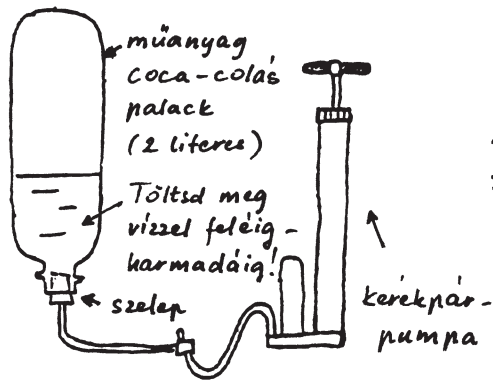 műanyag
coca-colás
palack
(2 literes)
Töltsd meg
vízzel feléig-
harmadáig!
szelep
kerékpár-
pumpa